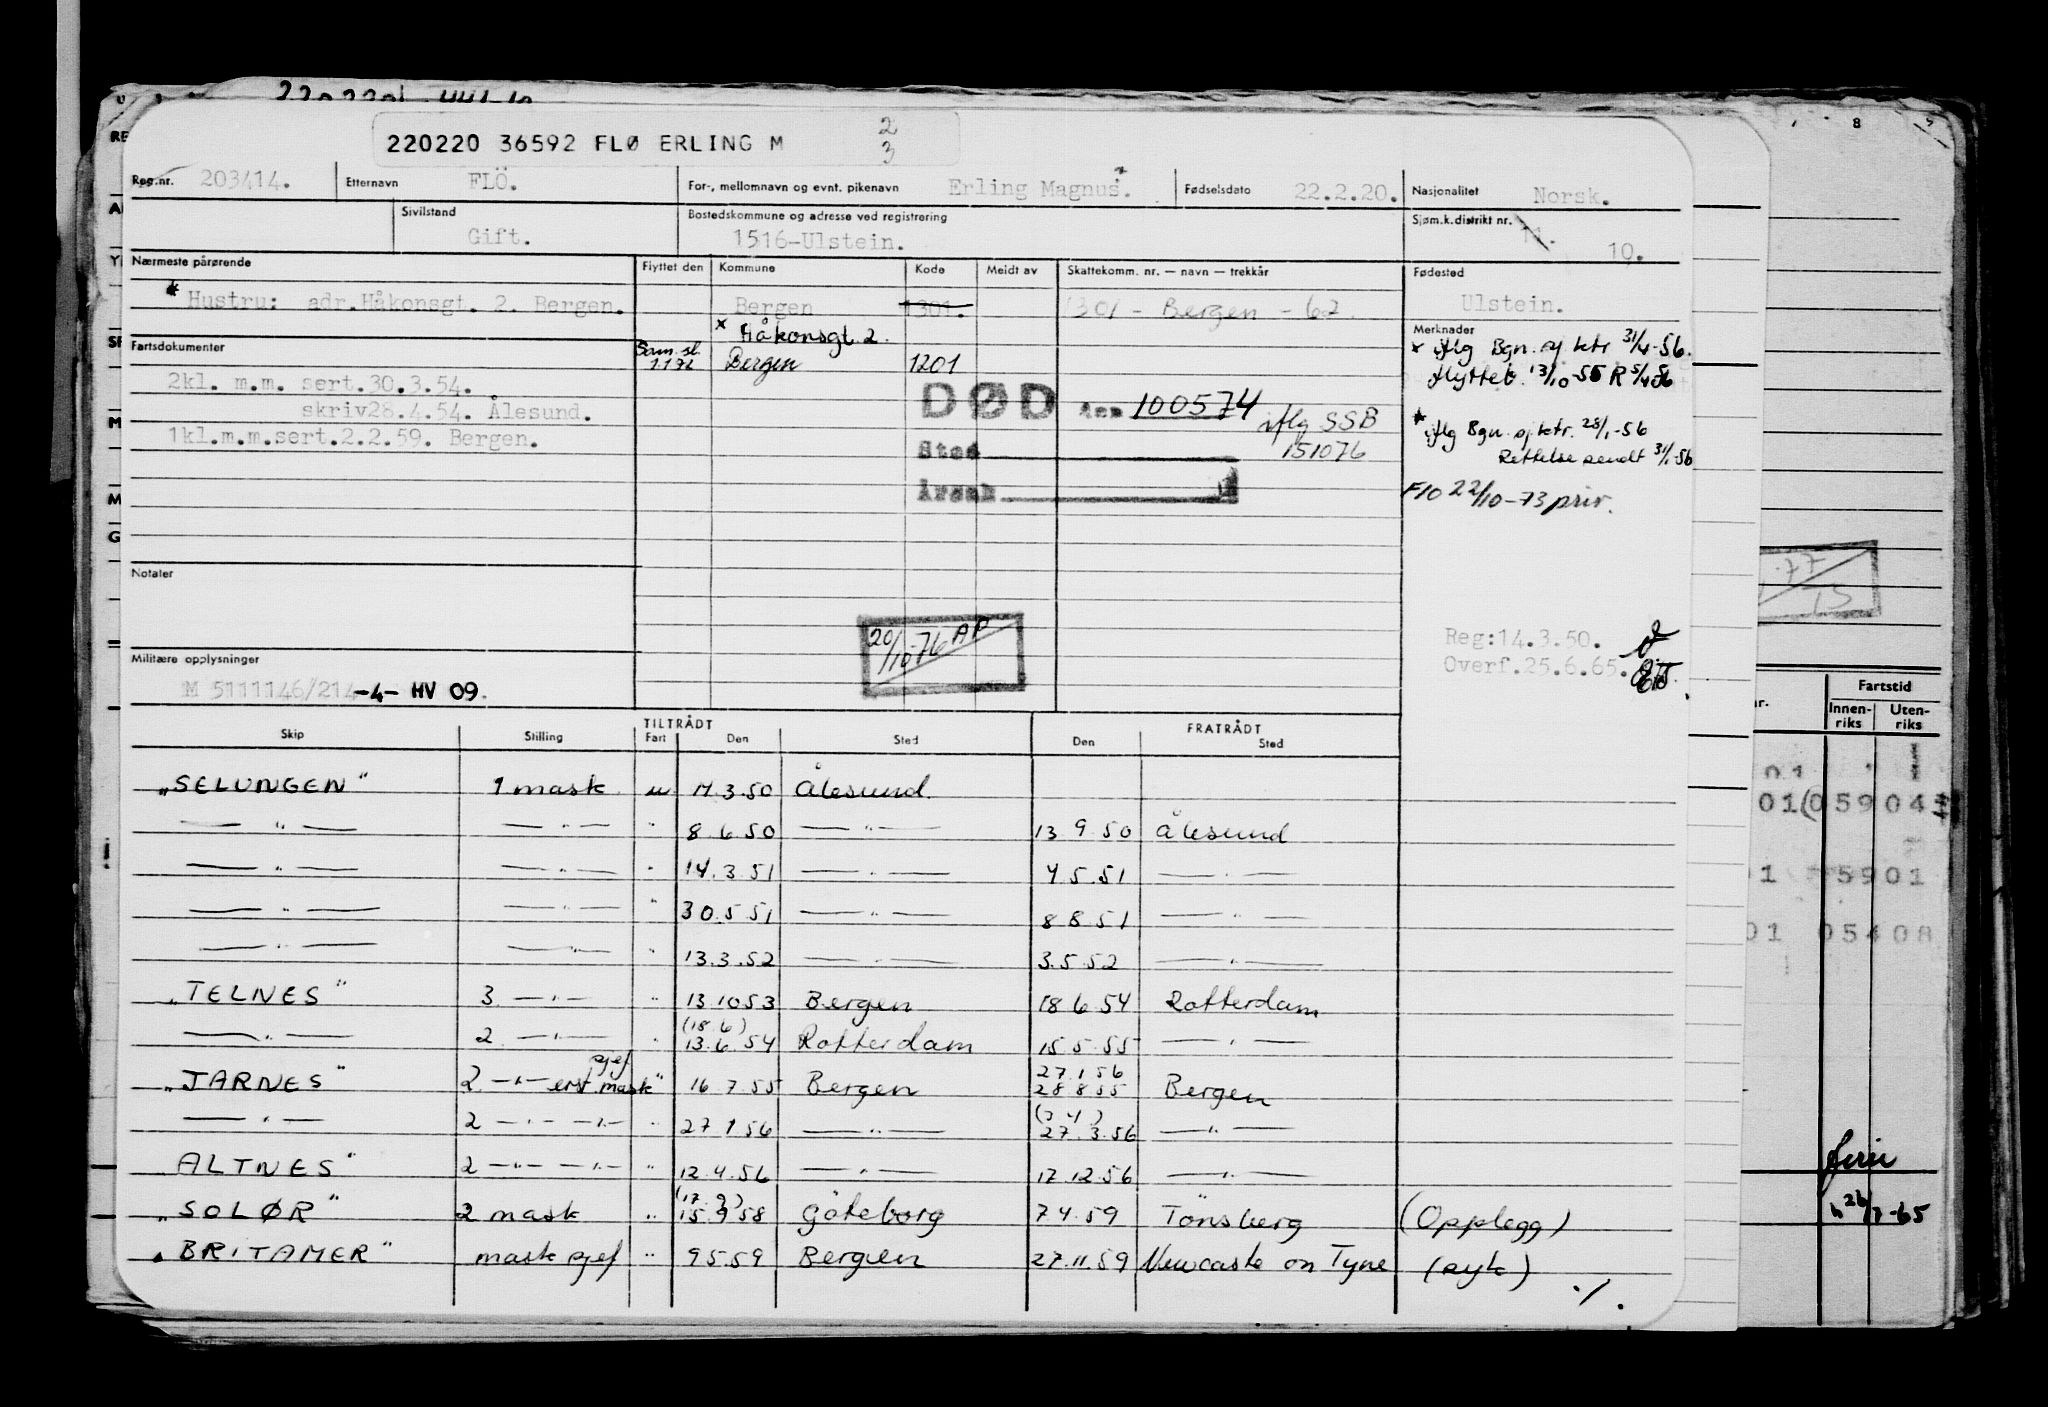 220220 36592 FLØ ERLING M 2/3
Reg.nr. 203414. Etternavn FLÖ. For-, mellomnavn og evnt. pikenavn Erling Magnus. Fødselsdato 22.2.20. Nasjonalitet Norsk.
Sivilstand Gift. Bostedskommune og adresse ved registrering 1516-Ulstein. Sjøm.k.distrikt nr. 11. 10.
Nærmeste pårørende Flyttet den Kommune Kode Meldt av Skattekomm. nr. — navn — trekkår Fødested
* Hustru: adr.Håkonsgt. 2. Bergen. Bergen 1301. 1301 - Bergen - 62. Ulstein.
x Håkonsgt. 2.
Fartsdokumenter Sam. sl. 1.1.72 Bergen 1201
Merknader
* iflg Bgn. sj ktr 31/4-56.
flyttet 13/10-55 R 5/4-56
2kl. m.m. sert.30.3.54.
skriv28.4.54. Ålesund.
1kl.m.m.sert.2.2.59. Bergen.
DØD den 100574 iflg SSB
151076
Sted
Årsak
* iflg Bgn. sj ktr. 28/1-56
Rettelse sendt 31/1-56
F10 22/10-73 priv.
Notater
20/10-76 AP
Reg:14.3.50.
Overf.25.6.65.
Militære opplysninger
M 5111146/214-4- HV 09.
TILTRÅDT FRATRÅDT
Skip Stilling Fart Den Sted Den Sted
"SELUNGEN" 1 mask. u 14.3.50 Ålesund.
— " — — " — " 8.6.50 — " — 13.9.50 Ålesund
— " — — " — " 14.3.51 — " — 4.5.51 — " —
— " — — " — " 30.5.51 — " — 8.8.51 — " —
— " — — " — " 13.3.52 — " — 3.5.52 — " —
"TELNES" 3 — " — " 13.10.53 Bergen 18.6.54 Rotterdam
— " — 2 — " — " (18.6) 13.6.54 Rotterdam 15.5.55 — " —
"JARNES" 2 — " — erst. mask sjef " 16.7.55 Bergen 27.1.56 28.8.55 Bergen
— " — 2 — " — — " — " 27.1.56 — " — (3.4) 27.3.56 — " —
"ALTNES" 2 — " — — " — " 12.4.56 — " — 17.12.56 — " —
"SOLØR" 2 mask " (17.9) 15.9.58 Göteborg 7.4.59 Tönsberg (Opplegg)
"BRITAMER" mask sjef " 9.5.59 Bergen 27.11.59 Newcastle on Tyne (syk)
./.
8
77
15
Fartstid
Innen-riks Uten-riks
01
01 (05904
5901
01 05408
ferie
26/7-65